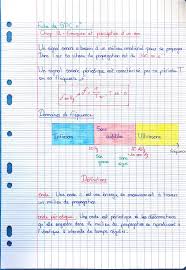 Fiche de SPC n°
Chap 2 - Emission et perception d'un son
Un signal sonore a besoin d'un milieu matériel pour se propager.
Dans l'air la vitesse de propagation est de 340 m.s⁻¹
Un signal sonore périodique est caractérisé par sa période T
en Hz
Domaines de fréquence
Infrasons
Sons audibles
Ultrasons
fréquence
20 Hz
20 kHz
son grave
son aigu
Définitions
onde : Une onde
milieu de propagation.
onde périodique : Une onde est périodique si les déformations
qu'elle engendre dans le milieu de propagation se reproduisent à
l'identique à intervalle de temps régulier.